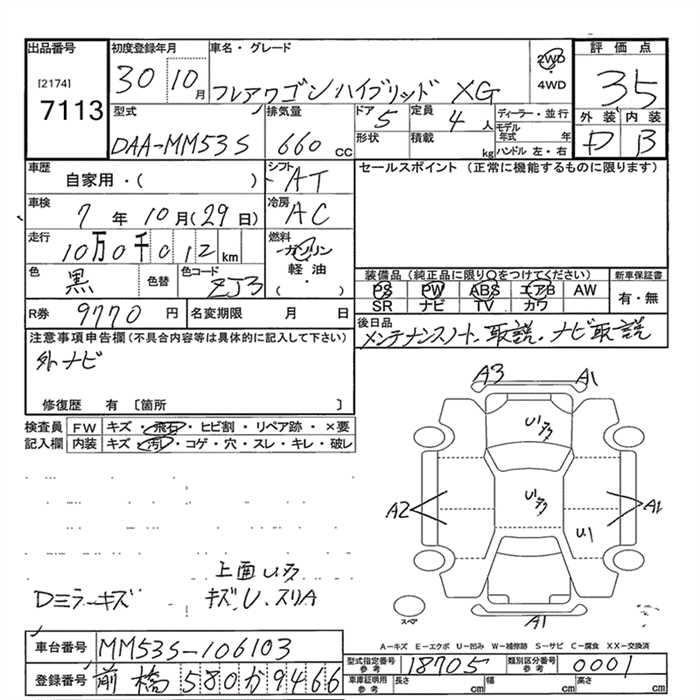 出品番号 初度登録年月 車名・グレード 評価点
[2174] 7113 30 10月 フレアワゴンハイブリッド XG 2WD ・ 4WD 35
型式 排気量 ドア 定員 ディーラー・並行 外装 内装
DAA-MM53S 660 CC 5 4 人 モデル年式 年 D B
形状 積載 kg ハンドル 左・右
車歴 自家用・( ) シフト AT セールスポイント (正常に機能するものに限ります)
車検 7 年 10 月 (29 日) 冷房 AC
走行 10万0千012 km 燃料 ガソリン 軽油 ・ ( )
色 黒 色替 色コード ZJ3 装備品 (純正品に限り○をつけてください) 新車保証書
PS PW ABS エアB AW 有・無
SR ナビ TV カワ
R券 9770 円 名変期限 月 日 後日品
メンテナンスノート、取説、ナビ取説
注意事項申告欄 (不具合内容等は具体的に記入して下さい)
外ナビ
修復歴 有 〔箇所 〕
検査員 FW キズ・飛石・ヒビ割・リペア跡・×要
記入欄 内装 キズ・汚レ・コゲ・穴・スレ・キレ・破レ
A3 A1
Uラ
A2 Uラ A1
U1
上面Uラ
Dミラーキズ キズU、スリA
スペア A1
A-キズ E-エクボ U-凹み W-補修跡 S-サビ C-腐食 XX-交換済
車台番号 MM53S-106103 型式指定番号 参考 18705 類別区分番号 参考 0001
登録番号 前橋 580か9466 車庫証明用 参考 長さ cm 幅 cm 高さ cm